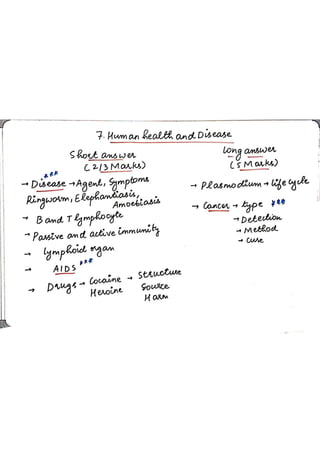 7. Human health and Disease
Short answer
(2/3 Marks)
***
→ Disease → Agent, Symptoms
Ringworm, Elephantiasis,
Amoebiasis
→ B and T lymphocyte
→ Passive and active immunity
→ lymphoid organ
→ AIDS ***
→ Drugs → Cocaine → Structure
Heroine Source
Harm
Long answer
(5 Marks)
→ Plasmodium → life cycle
→ Cancer → type ***
→ Detection
→ Method
→ Cure